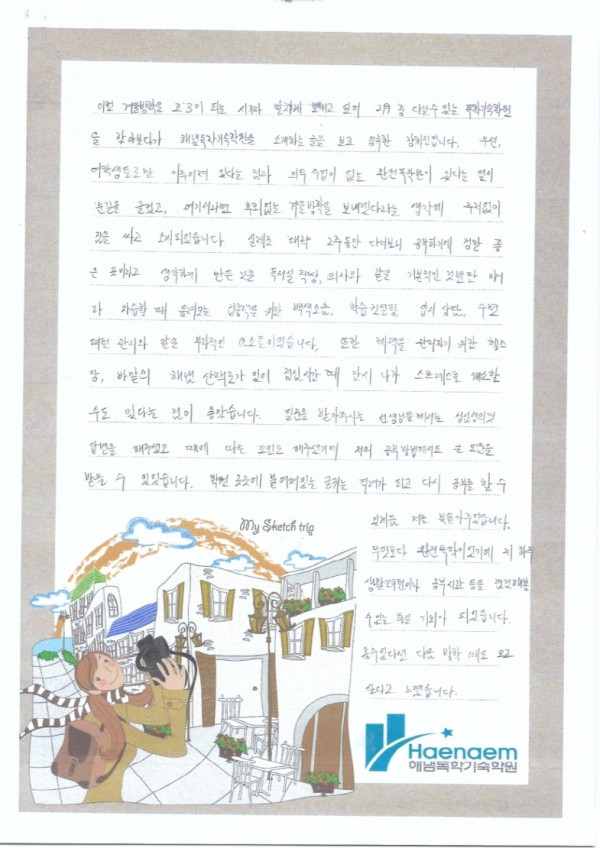 이번 겨울방학은 고3이 되는 시기라 알차게 보내고 싶어 2月 중 다닐수있는 독학기숙학원
을 찾아보다가 해냄독학기숙학원을 소개하는 글을 보고 등록한 장학생입니다. 우선,
여학생들로만 이루어져 있다는 점과 의무 수업이 없는 완전독학원이 있다는 점이
눈길을 끌었고, 여기서라면 후회없는 겨울방학을 보내겠다라는 생각에 주저없이
짐을 싸고 오게되었습니다. 실제로 대략 2주동안 다녀보니 공부하기에 정말 좋
은 곳이라고 생각하게 만든 것은 독서실 책상, 의자와 같은 기본적인 것뿐만 아니
라 자습할 때 들려오는 집중력을 위한 백색소음, 학습 컨설팅, 입시 상담, 수면
패턴 관리와 같은 부가적인 요소들이었습니다. 또한 체력을 관리하기 위한 헬스
장, 바깥의 해냄 산책로가 있어 점심시간 때 잠시 나와 스트레스를 해소할
수도 있다는 점이 좋았습니다. 질문을 받아주시는 선생님들께서는 성심성의껏
답변을 해주셨고 때에 따른 조언도 해주셨기에 저의 공부방법에서도 큰 도움을
받을 수 있었습니다. 학원 곳곳에 붙여져있는 글귀는 격려가 되고 다시 공부를 할 수
있게끔 저를 북돋아주었습니다.
무엇보다 완전독학이었기에
생활패턴이나 공부시간 등을 점검해볼
수있는 좋은 기회가 되었습니다.
할수있다면 다음 방학 때도 오고
싶다고 느꼈습니다.
My Sketch trip
Haenaem
해냄독학기숙학원